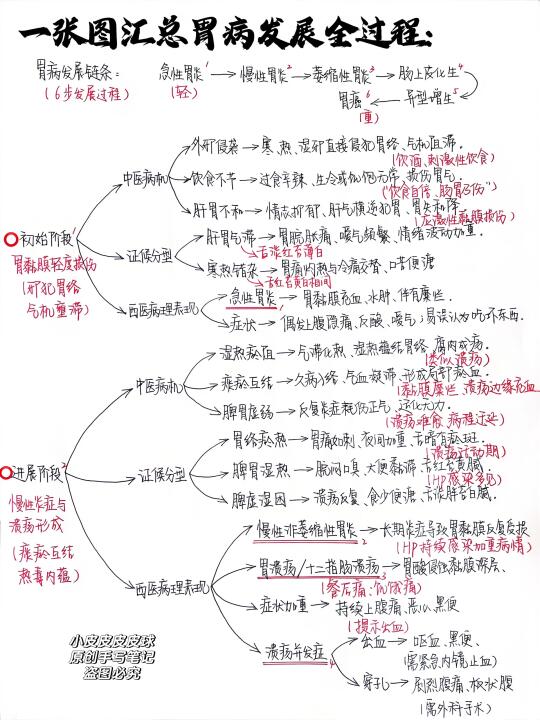 一张图汇总胃病发展全过程:
胃病发展链条:
(6步发展过程)
急性胃炎1 → 慢性胃炎2 → 萎缩性胃炎3 → 肠上皮化生4
(轻)
胃癌6 ← 异型增生5
(重)
初始阶段1
胃黏膜轻度损伤
(邪犯胃络
气机壅滞)
中医病机
外邪侵袭 → 寒、热、湿邪直接侵犯胃络、气机阻滞.
(饮酒、刺激性饮食)
饮食不节 → 过食辛辣、生冷或饥饱无常,损伤胃气.
("饮食自倍、肠胃乃伤")
肝胃不和 → 情志抑郁、肝气横逆犯胃、胃失和降.
(应激性黏膜损伤)
证候分型
肝胃气滞 → 胃脘胀痛、嗳气频繁、情绪波动加重.
舌淡红苔薄白
寒热错杂 → 胃痛灼热与冷痛交替、口苦便溏
舌红苔黄白相间
西医病理表现
急性胃炎 → 胃黏膜充血、水肿、伴有糜烂.
症状 → 偶发上腹隐痛、反酸、嗳气;易误认为吃坏东西.
进展阶段2
慢性炎症与
溃疡形成
(痰瘀互结
热毒内蕴)
中医病机
湿热瘀阻 → 气滞化热、湿热蕴结胃络、腐肉成疡.
(类似溃疡)
痰瘀互结 → 久病入络、气血凝滞、形成局部瘀血.
(黏膜糜烂、溃疡边缘充血
脾胃虚弱 → 反复炎症耗伤正气、运化无力.
(溃疡难愈、病程迁延)
证候分型
胃络瘀热 → 胃痛如刺、夜间加重、舌暗有瘀斑.
(溃疡活动期)
脾胃湿热 → 脘闷口臭、大便黏滞、舌红苔黄腻.
(HP感染多见)
脾虚湿困 → 溃疡反复、食少便溏、舌淡胖苔白腻.
西医病理表现
慢性非萎缩性胃炎 → 长期炎症导致胃黏膜反复受损
2
(HP持续感染加重病情)
胃溃疡/十二指肠溃疡3 → 胃酸侵蚀黏膜深层、
(餐后痛;饥饿痛)
症状加重 → 持续上腹痛、恶心、黑便
(提示出血)
溃疡并发症4
出血 → 呕血、黑便、
(需紧急内镜止血)
穿孔 → 剧烈腹痛、板状腹
(需外科手术)
小皮皮皮皮球
原创手写笔记
盗图必究